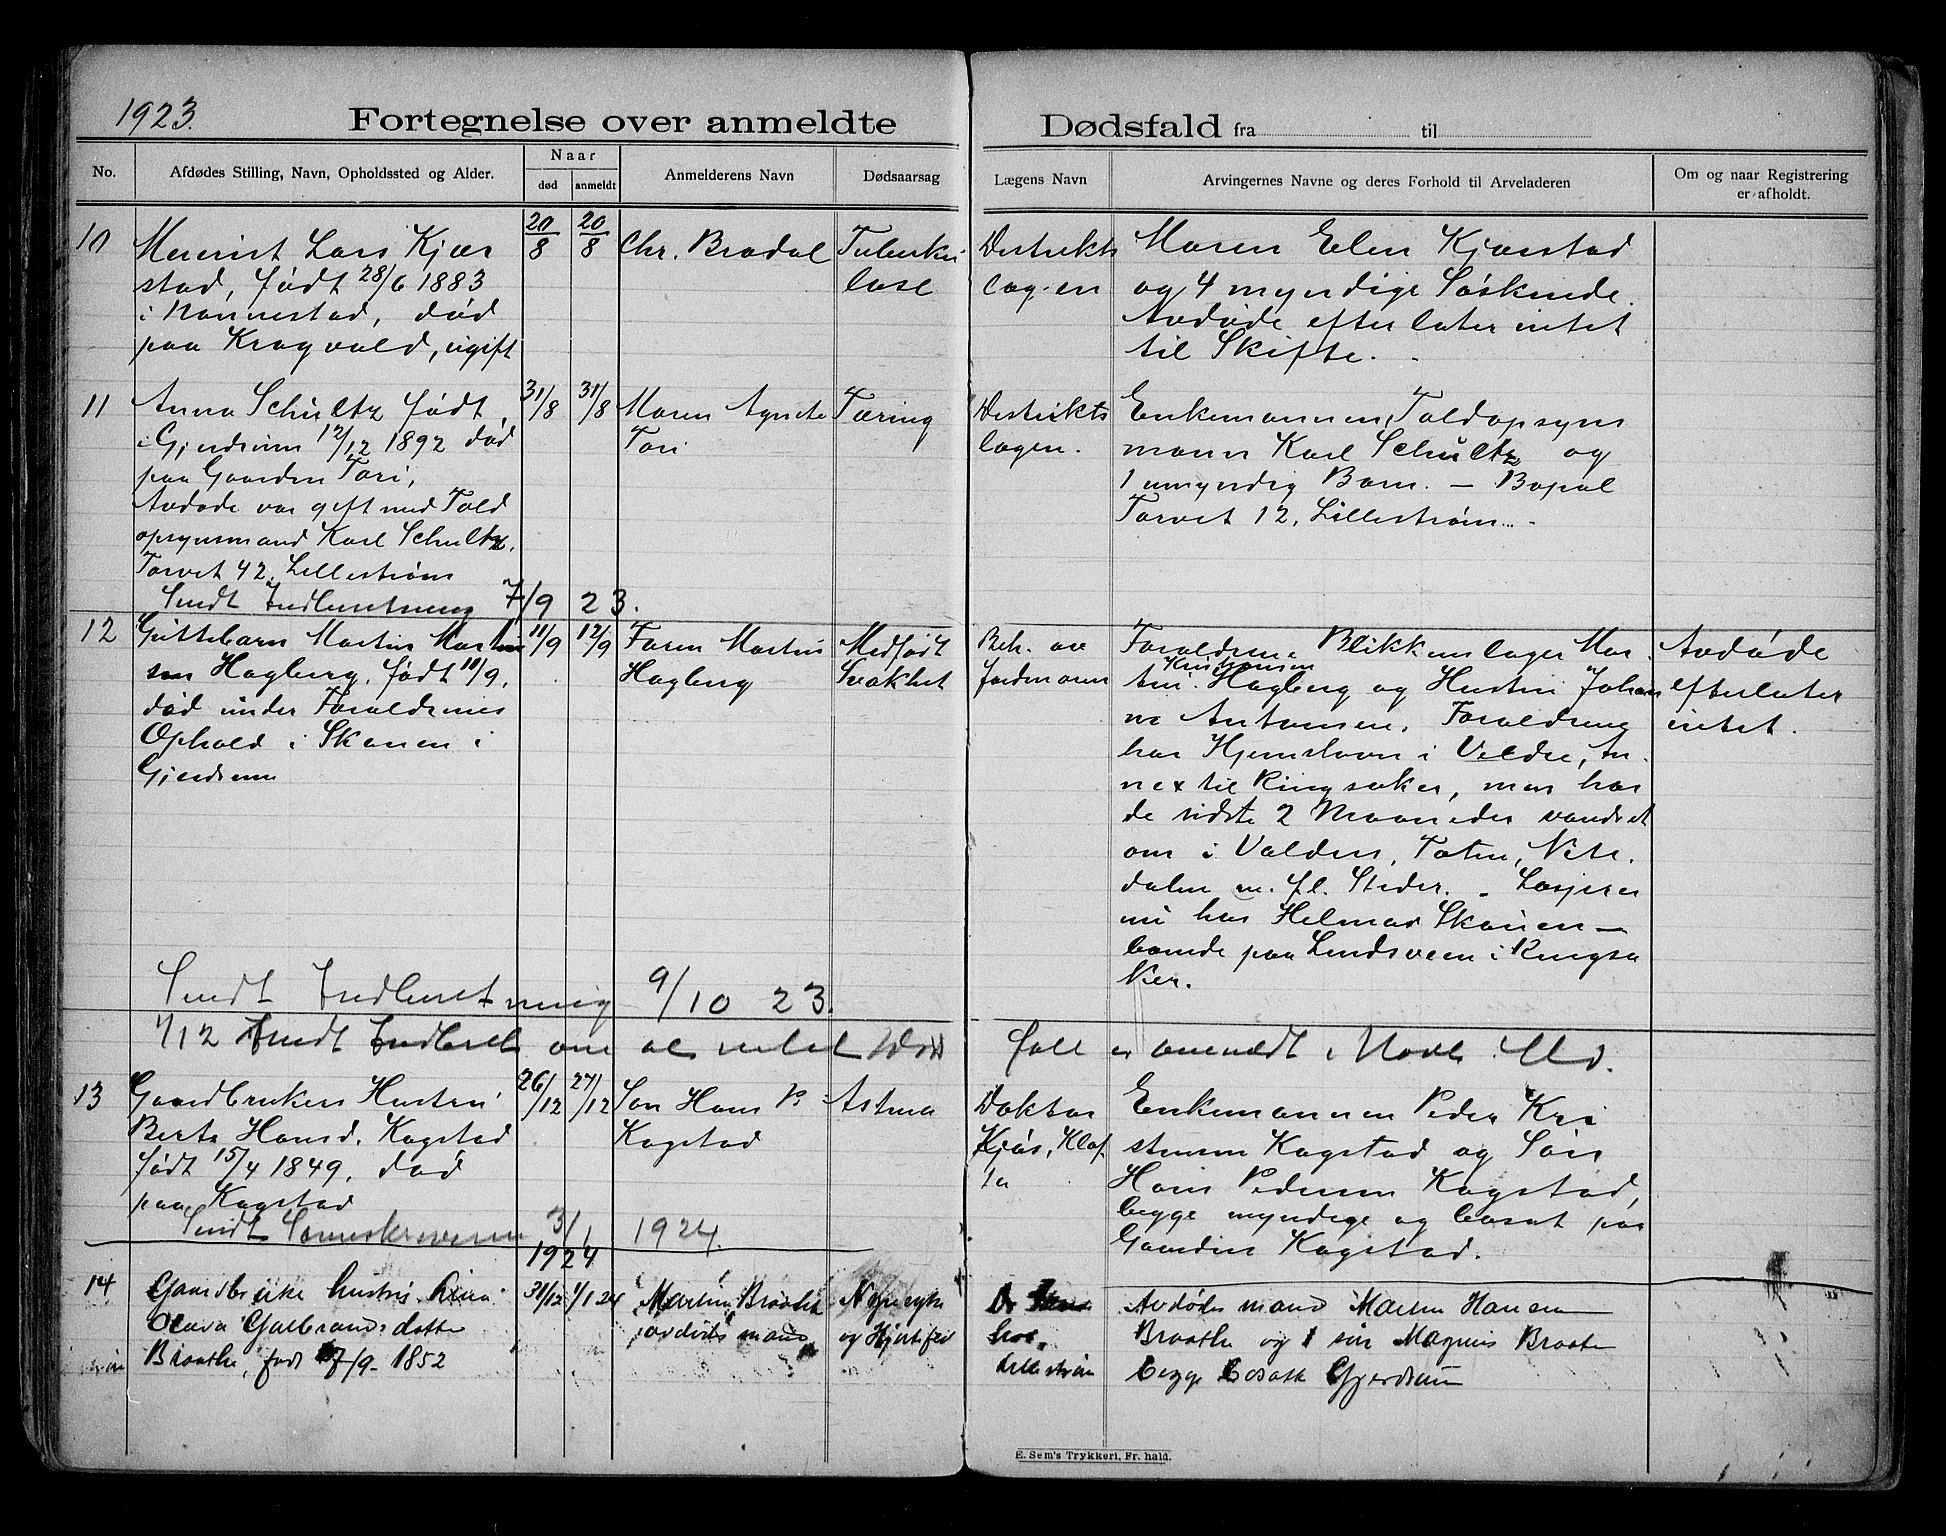 1923.
Fortegnelse over anmeldte Dødsfald fra til
No.
Afdødes Stilling, Navn, Opholdssted og Alder.
Naar
død
anmeldt
Anmelderens Navn
Dødsaarsag
Lægens Navn
Arvingernes Navne og deres Forhold til Arveladeren
Om og naar Registrering
er afholdt.
10
Meierist Lars Kjær
stad, født 28/6 1883
i Nannestad, død
paa Kragvald, ugift
20/8
20/8
Chr. Bradal
Tuberku
lose
Destrikts
lægen
Maren Elen Kjærstad
og 4 myndige Søskende.
Avdøde efterlater intet
til Skifte.
11
Anna Schultz født
i Gjerdrum 12/12 1892 død
paa Gaarden Tari,
Avdøde var gift med Told
opsynsmand Karl Schultz,
Torvet 42, Lillestrøm
Sendt Indberetning 7/9 23.
31/8
31/8
Maren Agnete
Tari
Tæring
Destrikts
lægen.
Enkemannen, Toldopsyns
mann Karl Schultz og
1 umyndig Barn. — Bopæl
Torvet 12, Lillestrøm.
12
Guttebarn Martin Martin
sen Hagberg, født 10/9,
død under Forældrenes
Ophold i Skanen i
Gjerdrum
11/9
12/9
Faren Martin
Hagberg
Medfødt
Svakhet
Beh. av
Jordmoren
Forældrene Blikkenslager Mar
tin Kristiansen Hagberg og Hustru Johan
ne Antonsen. Forældrene
har Hjemstavn i Veldre, An
nex til Ringsaker, men har
de sidste 2 Maaneder vandret
om i Valders, Toten, Nite
dalen m. fl. Steder. Losjerer
nu hos Helmar Skanen —
boende paa Lendsveen i Ringsa
ker.
Avdøde
efterlater
intet.
Sendt Indberetning 9/10 23.
1/12 Sendt Indberetn om at intet Døds
fall er anmeldt i Novb. Md.
13
Gaardbrukers Hustru
Berte Hansd. Kagstad
født 15/4 1849, død
paa Kagstad
Sendt 3/1 1924.
26/12
27/12
Søn Hans P
Kagstad
Astma
Doktor
Kjøs, Kløf
ta
Enkemannen Peder Kri
stensen Kagstad og Søn
Hans Pedersen Kagstad,
begge myndige og bosat paa
Gaarden Kagstad.
1924
14
Gaardbruke hustru
Olava Gulbrandsdatter
Braathe, født 7/9 1852
31/12
1/1 24
Martin Braathe
avdødes mand
Nyresyke
og Hjertefeil
Dr
Lillestrøm
Avdødes mand Martin Hansen
Braathe og 1 søn Magnus Braate
begge bosatt Gjerdrum
E. Sem's Trykkeri, Fr. hald.